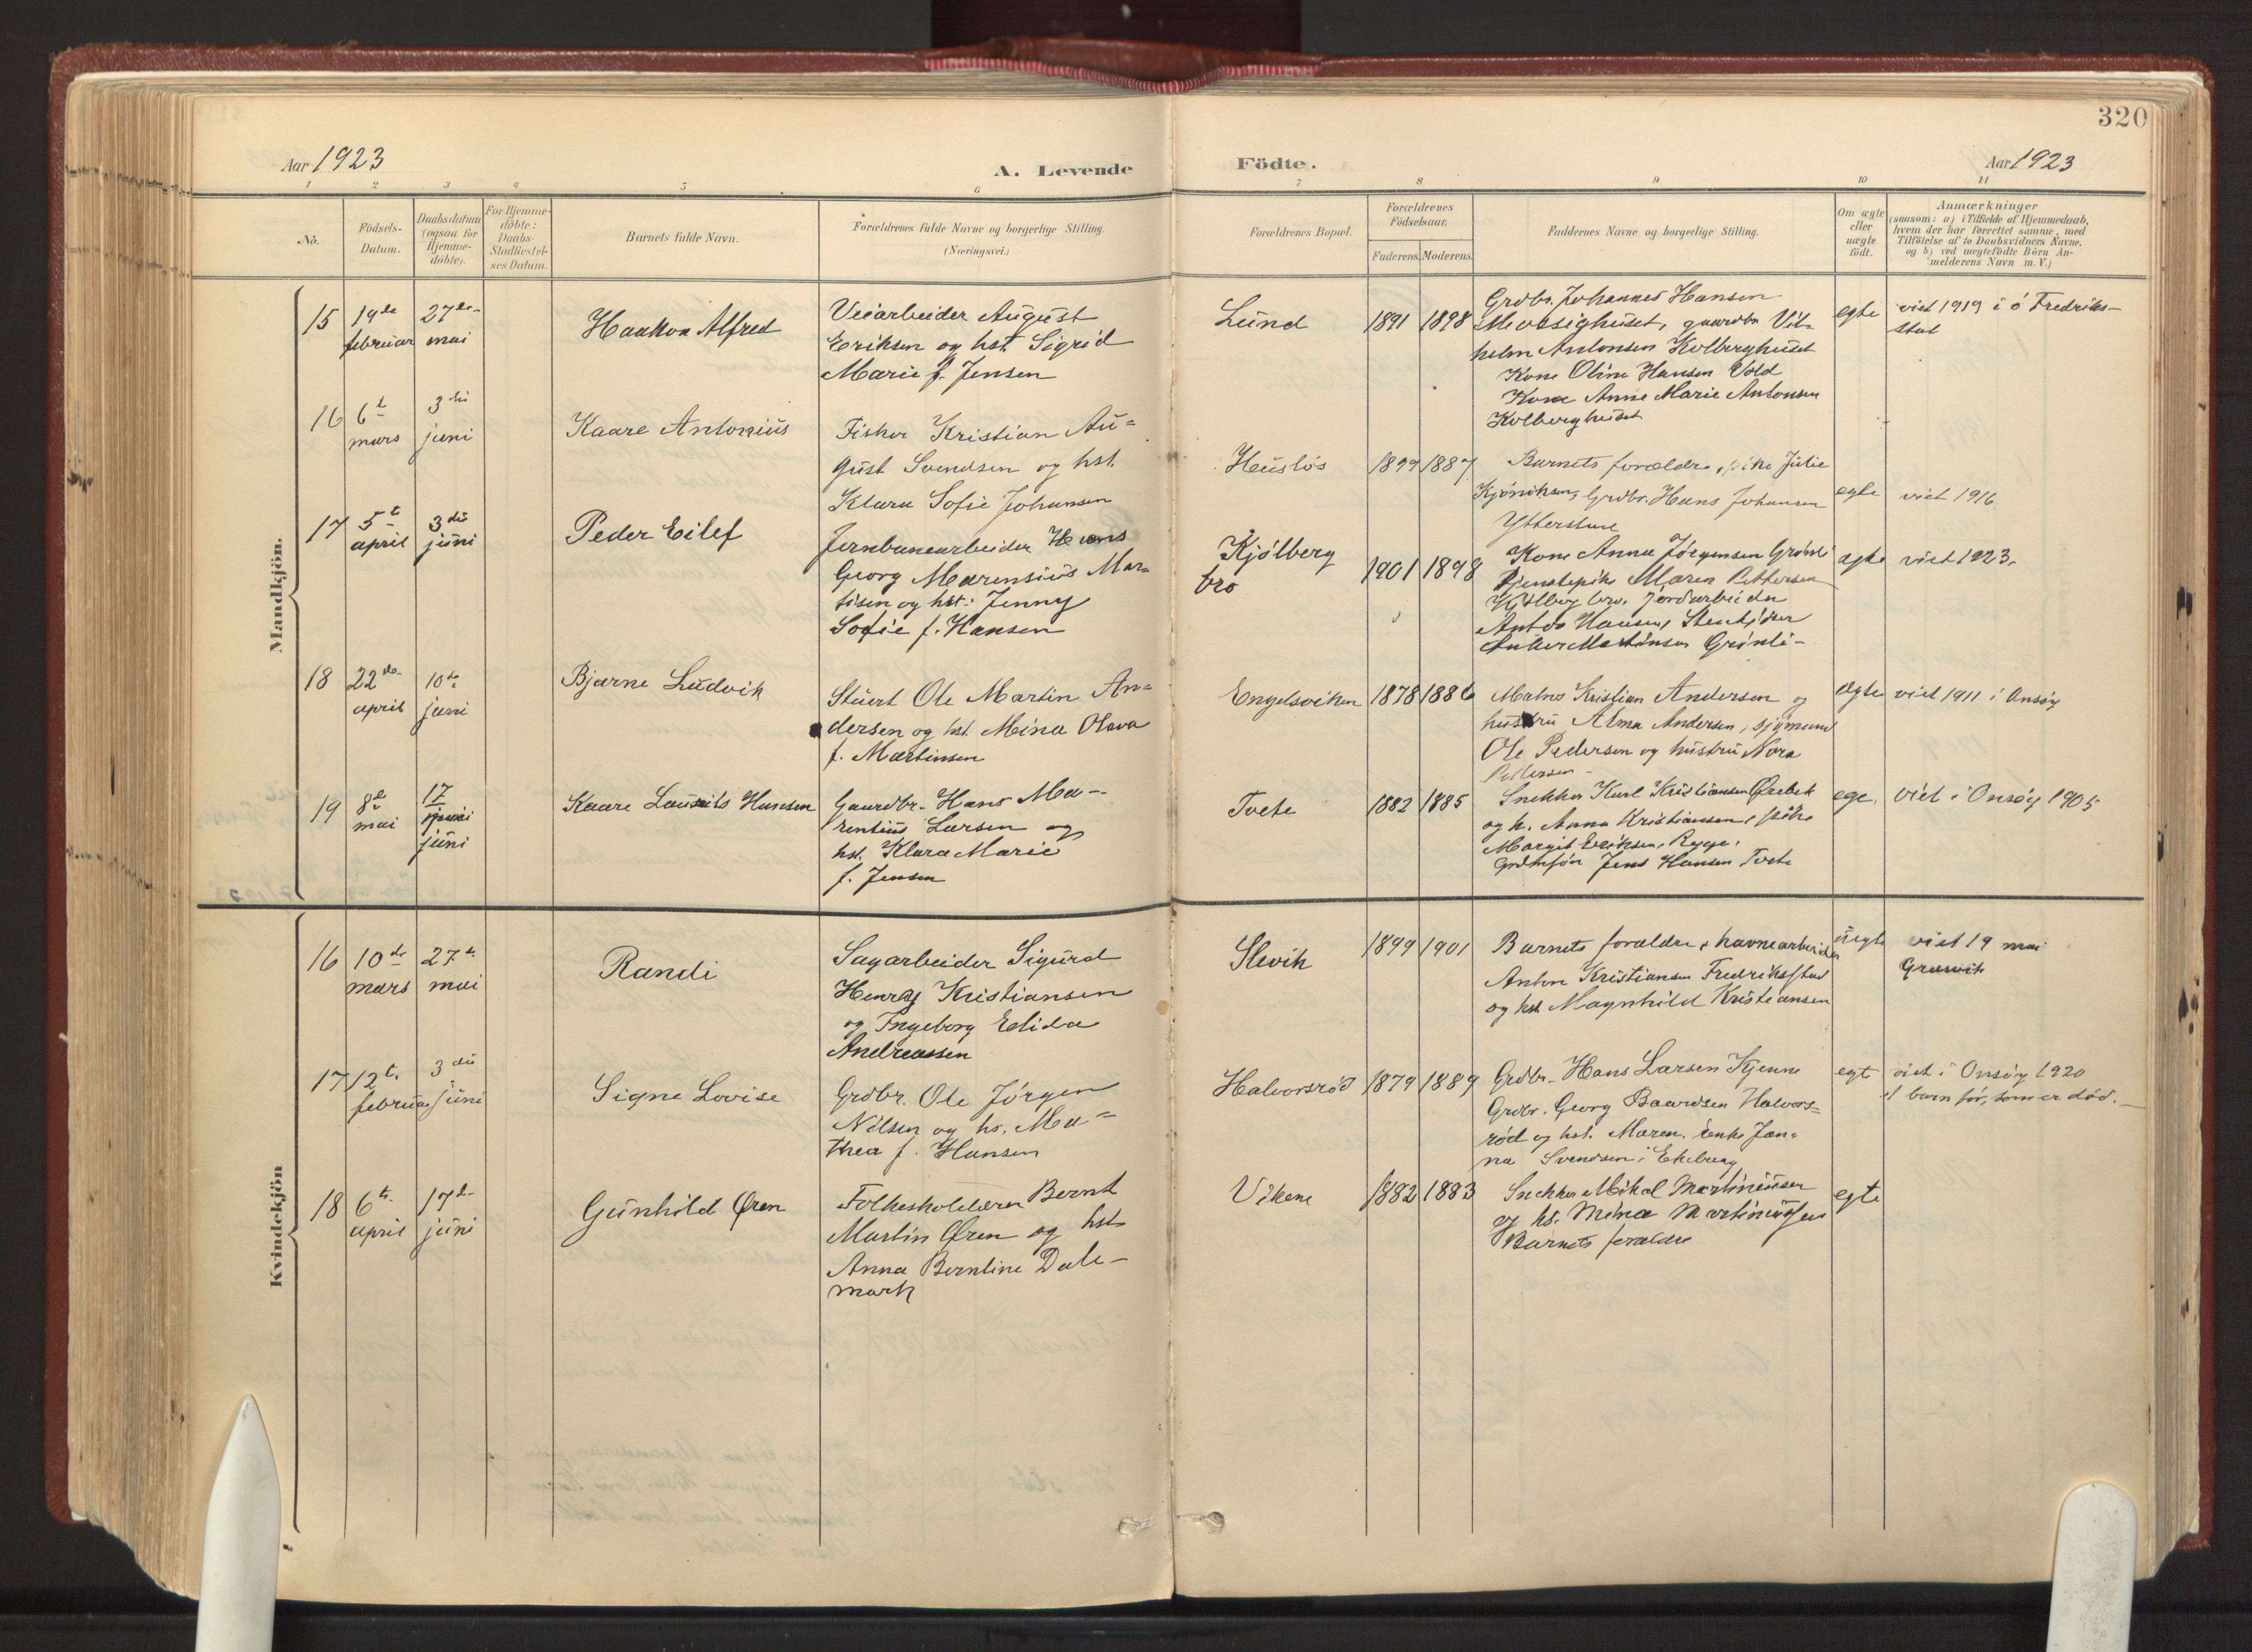 320
Aar 1923
A. Levende
Födte.
Aar 1923
1 2 3 4 5 6 7 8 9 10 11
No.
Födsels-
Datum.
Daabsdatum
(ogsaa for
Hjemme-
döbte).
For Hjemme-
döbte:
Daabs-
Stadfæstel-
ses Datum.
Barnets fulde Navn.
Forældrenes fulde Navne og borgerlige Stilling.
(Næringsvei.)
Forældrenes Bopæl.
Forældrenes
Födselsaar.
Faderens. Moderens.
Faddernes Navne og borgerlige Stilling.
Om ægte
eller
uægte
födt.
Anmærkninger
(saasom: a) i Tilfælde af Hjemmedaab,
hvem der har forrettet samme, med
Tilföielse af to Daabsvidners Navne,
og b) ved uægtefödte Börn An-
melderens Navn m. V.)
Mandkjön.
15
19de
februar
27de
mai
Haakon Alfred
Veiarbeider August
Eriksen og hst Sigrid
Marie f. Jensen
Lund
1891
1898
Grdbr. Johannes Hansen
gaardbr Vil-
helm Antonsen Kolberghuset
Kone Oline Hansen Vold
Kone Anne Marie Antonsen
Kolberghuset
egte
viet 1919 i ø Fredriks-
stad
16
6t
mars
3die
juni
Kaare Antonius
Fisker Kristian Au-
gust Svendsen og hst.
Klara Sofie Johansen
Huslös
1899
1887
Barnets forældre, pike Julie
Grdbr. Hans Johansen
egte
viet 1916
17
5t
april
3die
juni
Peder Eilef
Jernbanearbeider Hans
Georg Marensius Mar-
tisen og hst: Jenny
Sofie f. Hansen
Kjölberg
bro
1901
1898
Kone Anna Jörgensen Grönli
Tjenstepike Maren Pettersen
Kjölberg bro. Jordarbeider
Anton Hansen,
Martinsen Grönli -
egte
viet 1923.
18
22de
april
10de
juni
Bjarne Ludvik
Stuert Ole Martin An-
dersen og hst. Mina Olava
f. Martinsen
Engelsviken
1878
1886
Matros Kristian Andersen og
hustru Alma Andersen, sjömand
Ole Pedersen og hustru Nora
Pettersen
egte
viet 1911 i Onsøy
19
8de
mai
17
juni
Kaare Laurits Hansen
Gaardbr. Hans Ma-
rentius Larsen og
hst. Klara Marie
f. Jensen
Tvete
1882
1885
Snekker Karl Kristiansen Ørebek
og h. Anna Kristiansen, pike
Margit Eriksen, Rygge,
Jens Hansen Tvete
ege.
viet i Onsøy 1905
Kvindekjön
16
10de
mars
27de
mai
Randi
Sagarbeider Sigurd
Henry Kristiansen
og Ingeborg Elida
Andreassen
Slevik
1899
1901
Barnets forældre, havnearbeider
Anton Kristiansen Fredrikstad
og hst. Magnhild Kristiansen
uegte
viet 19 mai
Gresvik
17
12t.
februar
3die
juni
Signe Lovise
Grdbr. Ole Jörgen
Nilsen og hs. Ma-
thea f. Hansen
Halvorsrød
1879
1889
Grdbr. Hans Larsen Kjenne
Grdbr. Georg Baardsen Halvors-
rød og hst. Maren. enke Jan-
na Svendsen, Ekeberg
egt
viet i Onsøy 1920
1 barn før, som er død.
18
6t.
april
17de
juni
Gunhild Øren
Folkeskolelærer Bernt
Martin Øren og hst
Anna Berntine Dale-
mark
Vikene
1882
1883
Snekker Mikal Martiniusen
og hs. Mina Martiniusen
Barnets forældre
egte